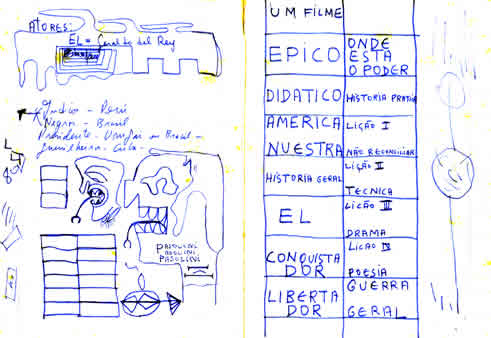 ATORES:
EL = Geraldo del Rey
Índio - Perú
Negro - Brasil
Presidente - ou Brasil -
Cuba -
PASOLINI
PASOLINI
PASOLINI
UM FILME
EPICO ONDE
ESTA
O PODER
DIDATICO HISTORIA PRATICA
AMERICA LIÇÃO I
NUESTRA NÃO RECONCILIAR
HISTORIA GERAL LIÇÃO II
TECNICA
EL LICÃO III
DRAMA
CONQUISTA LICÃO IV
DOR POESIA
LIBERTA GUERRA
DOR GERAL